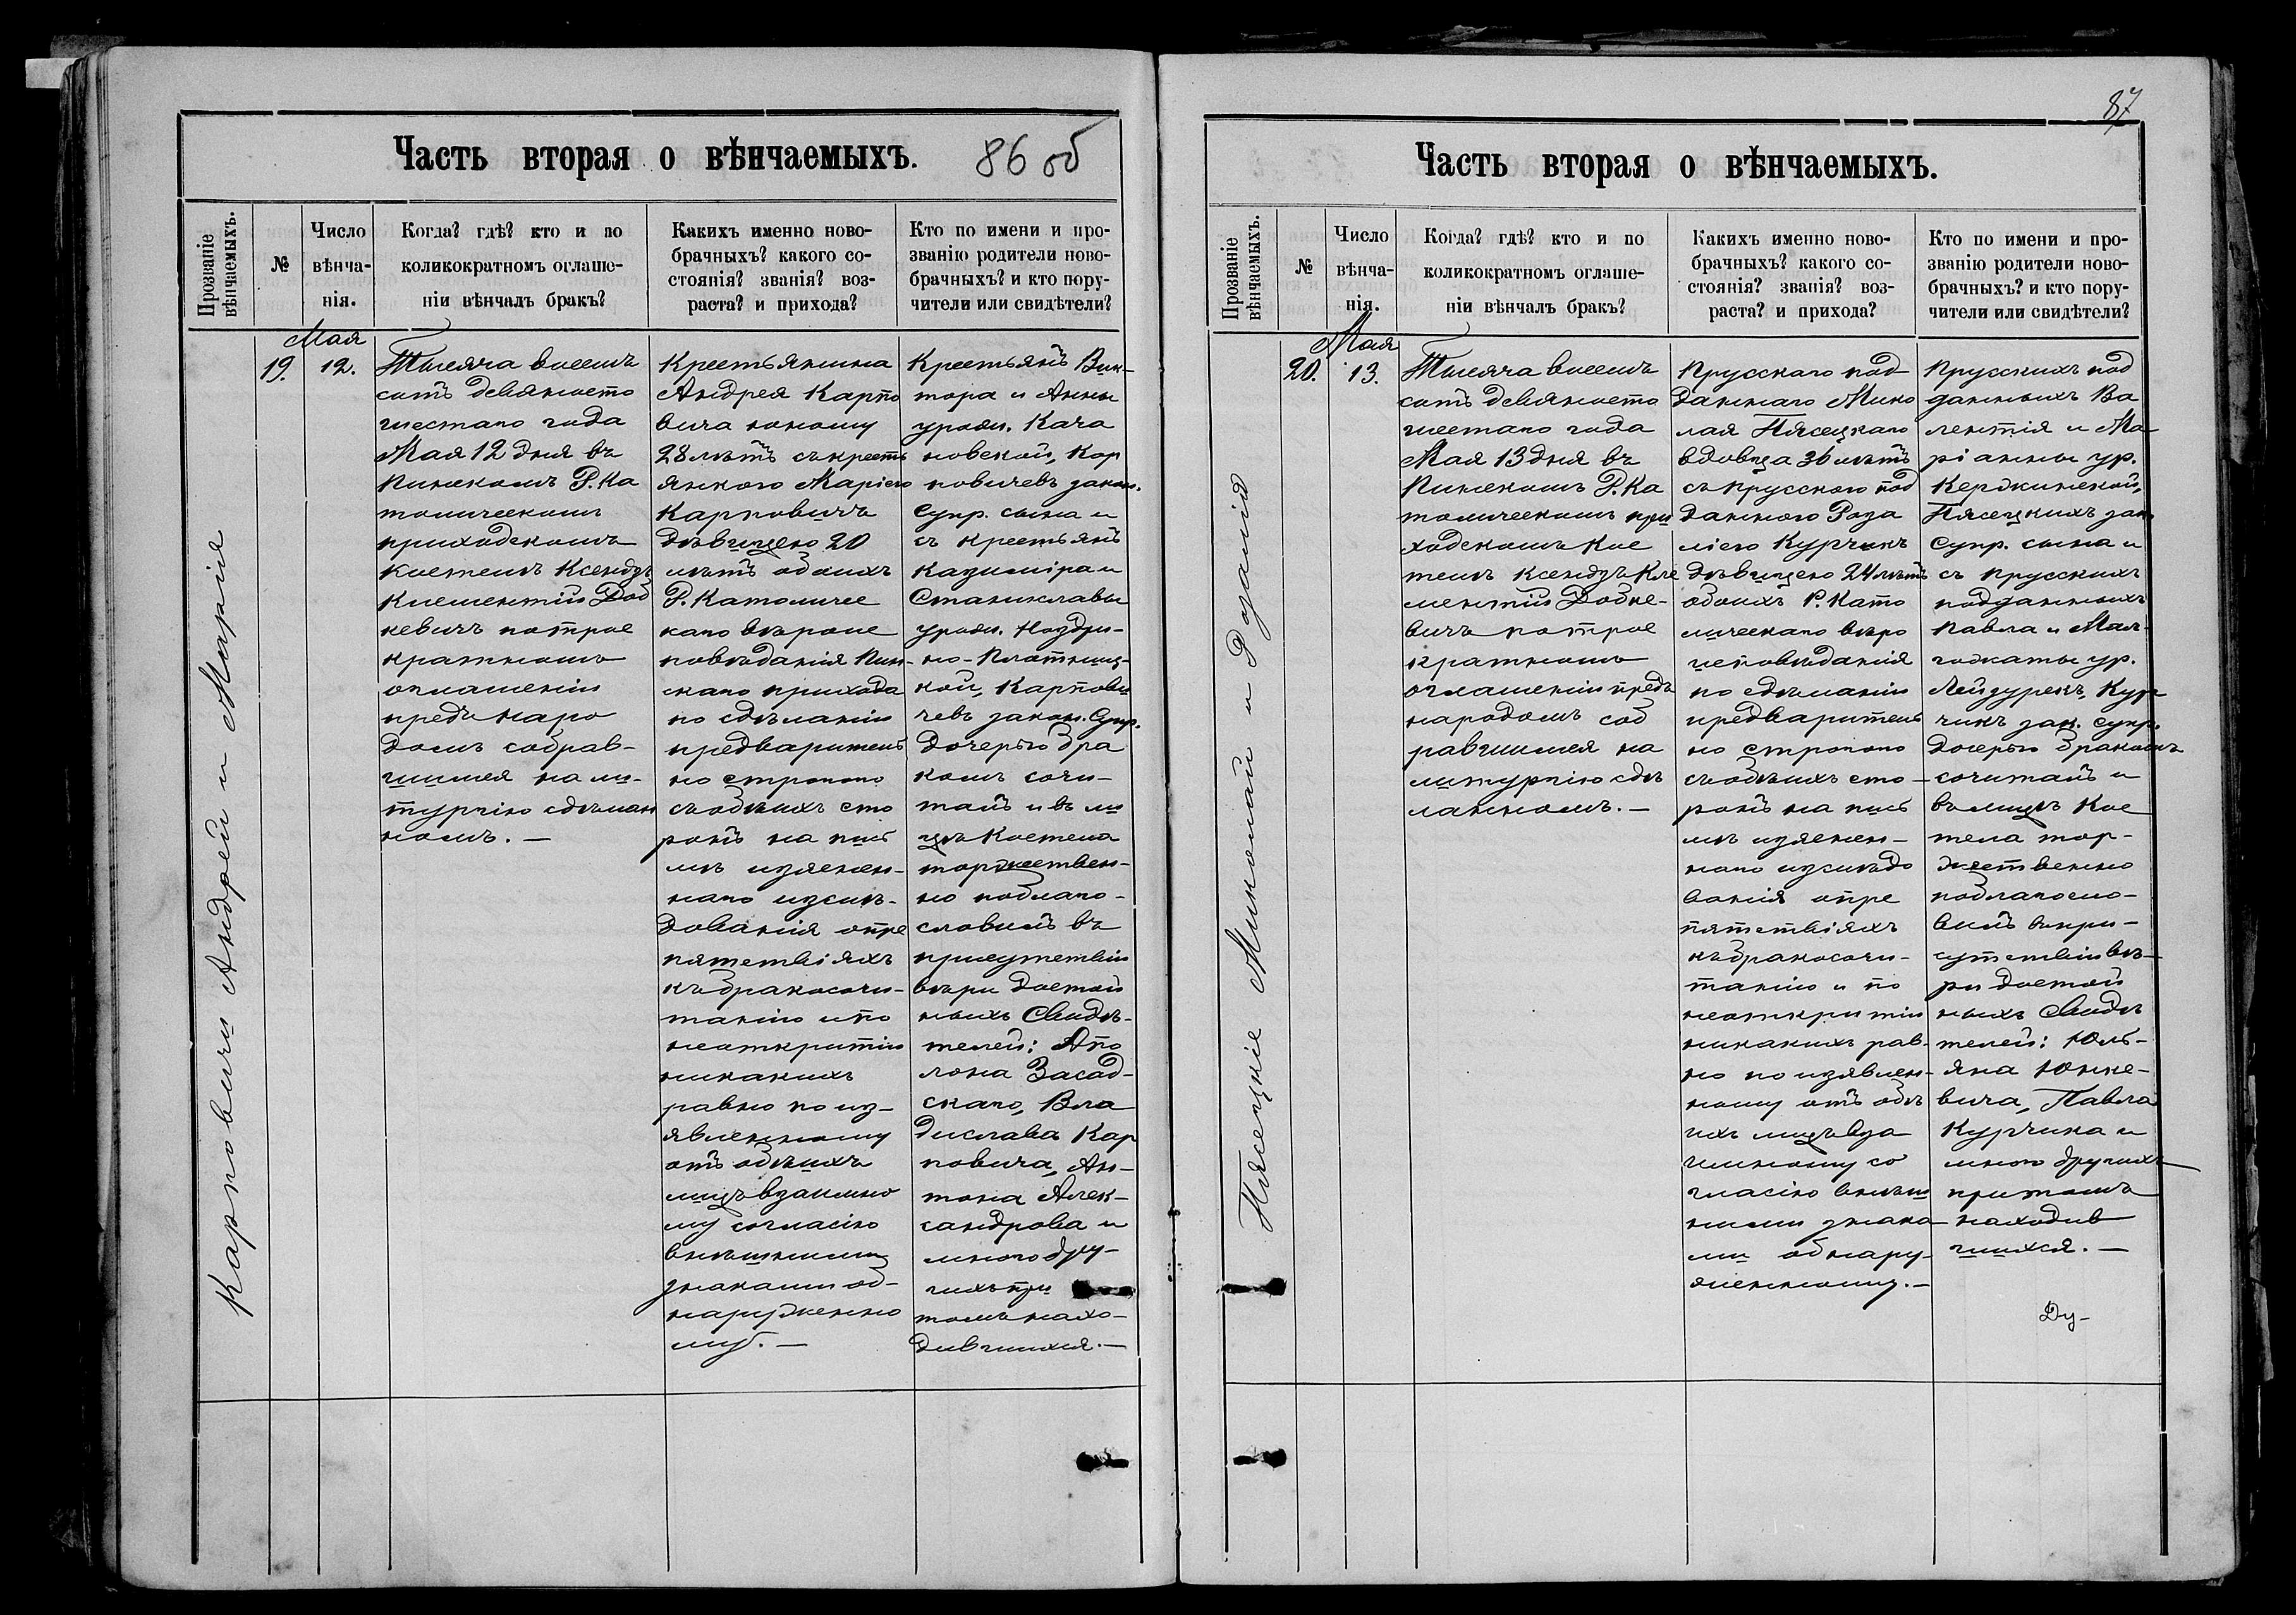 Часть вторая о вѣнчаемыхъ.
86 об
Прозваніе вѣнчаемыхъ.
№
Число вѣнча-нія.
Когда? гдѣ? кто и по
коликократномъ оглаше-
ніи вѣнчалъ бракъ?
Какихъ именно ново-
брачныхъ? какого со-
стоянія? званія? воз-
раста? и прихода?
Кто по имени и про-
званію родители ново-
брачныхъ? и кто пору-
чители или свидѣтели?
Карповичи Андрей и Марія
19.
Мая
12.
Тысяча восемь
сотъ девяносто
шестаго года
Мая 12 дня въ
Пинскомъ Р. Ка
толическомъ
приходскомъ
костелѣ Ксендзъ
Климентій Дод
кевичъ по трое
кратномъ
оглашеніи
предъ наро
домъ собрав-
шимся на ли-
тургію сдѣлан
номъ. —
Крестьянина
Андрея Карпо
вича юношу
28 лѣтъ съ кресть
янкою Маріею
Карповичъ
дѣвицею 20
лѣтъ обоихъ
Р. Католичес
каго вѣроис
повѣданія Пин-
скаго прихода
по сдѣланіи
предваритель
но строгого
съ обѣихъ сто
ронъ на пись
мѣ изяснен-
наго изслѣ-
дованія о пре
пятствіяхъ
къ бракосоче-
танію и по
неоткрытіи
никакихъ
равно по из-
явленному
отъ обѣихъ
лицъ взаимно
му согласію
внѣшними
знаками об-
наруженно
му. —
Крестьянъ Вик-
тора и Анны
урожд. Кача
новской, Кар
повичевъ закон.
Супр. сына и
съ крестьянъ
Казиміра и
Станиславы
урожд. Ноздри-
но-Плотниц-
кой, Карпови
чевъ закон. Супр.
дочерью бра
комъ соче-
талъ и въ ли
цѣ Костела
торжествен-
но поблаго-
словилъ въ
присутствіи
вѣры достой
ныхъ Свидѣ-
телей: Апо
лона Засад-
скаго, Вла
дислава Кар
повича, Ан-
тона Алек-
сандрова и
много дру-
гихъ при
томъ нахо-
дившихся. —
87
Часть вторая о вѣнчаемыхъ.
Прозваніе вѣнчаемыхъ.
№
Число вѣнча-нія.
Когда? гдѣ? кто и по
коликократномъ оглаше-
ніи вѣнчалъ бракъ?
Какихъ именно ново-
брачныхъ? какого со-
стоянія? званія? воз-
раста? и прихода?
Кто по имени и про-
званію родители ново-
брачныхъ? и кто пору-
чители или свидѣтели?
Пясецкіе Миколай и Розалія
20.
Мая
13.
Тысяча восемь
сотъ девяносто
шестаго года
Мая 13 дня въ
Пинскомъ Р. Ка
толическомъ при
ходскомъ Кос
телѣ Ксендзъ Кле
ментій Додке-
вичъ по трое
кратномъ
оглашеніи предъ
народомъ соб
равшимся на
литургію сдѣ
ланномъ. —
Прусскаго под
даннаго Мико
лая Пясецкаго
вдовца 36 лѣтъ
съ прусского под
данною Роза
ліею Курчикъ
дѣвицею 24 лѣтъ
обоихъ Р. Като
лическаго вѣро
исповѣданія
по сдѣланіи
предваритель
но строгого
съ обѣихъ сто-
ронъ на пись
мѣ изяснен-
наго изслѣдо
ванія о пре
пятствіяхъ
къ бракосоче-
танію и по
неоткрытіи
никакихъ рав-
но по изявлен-
ному отъ обѣ
ихъ лицъ вза
имному со
гласію внѣш
ними знака
ми обнару-
женному. —
Прусскихъ под
данныхъ Ва
лентія и Ма-
ріанны ур.
Кержкинской,
Пясецкихъ зак.
Супр. сына и
съ прусскихъ
подданныхъ
Павла и Мал-
гожаты ур.
Лейдурекъ, Кур
чикъ зак. супр.
дочерью бракомъ
сочеталъ и
въ лицѣ Кос
тела тор-
жественно
поблагосло-
вилъ въ при-
сутствіи вѣ-
ры достой
ныхъ Свидѣ
телей: Юль-
яна Юнке-
вича, Павла
Курчика и
много другихъ
при томъ
находив
шихся. —
Ду-